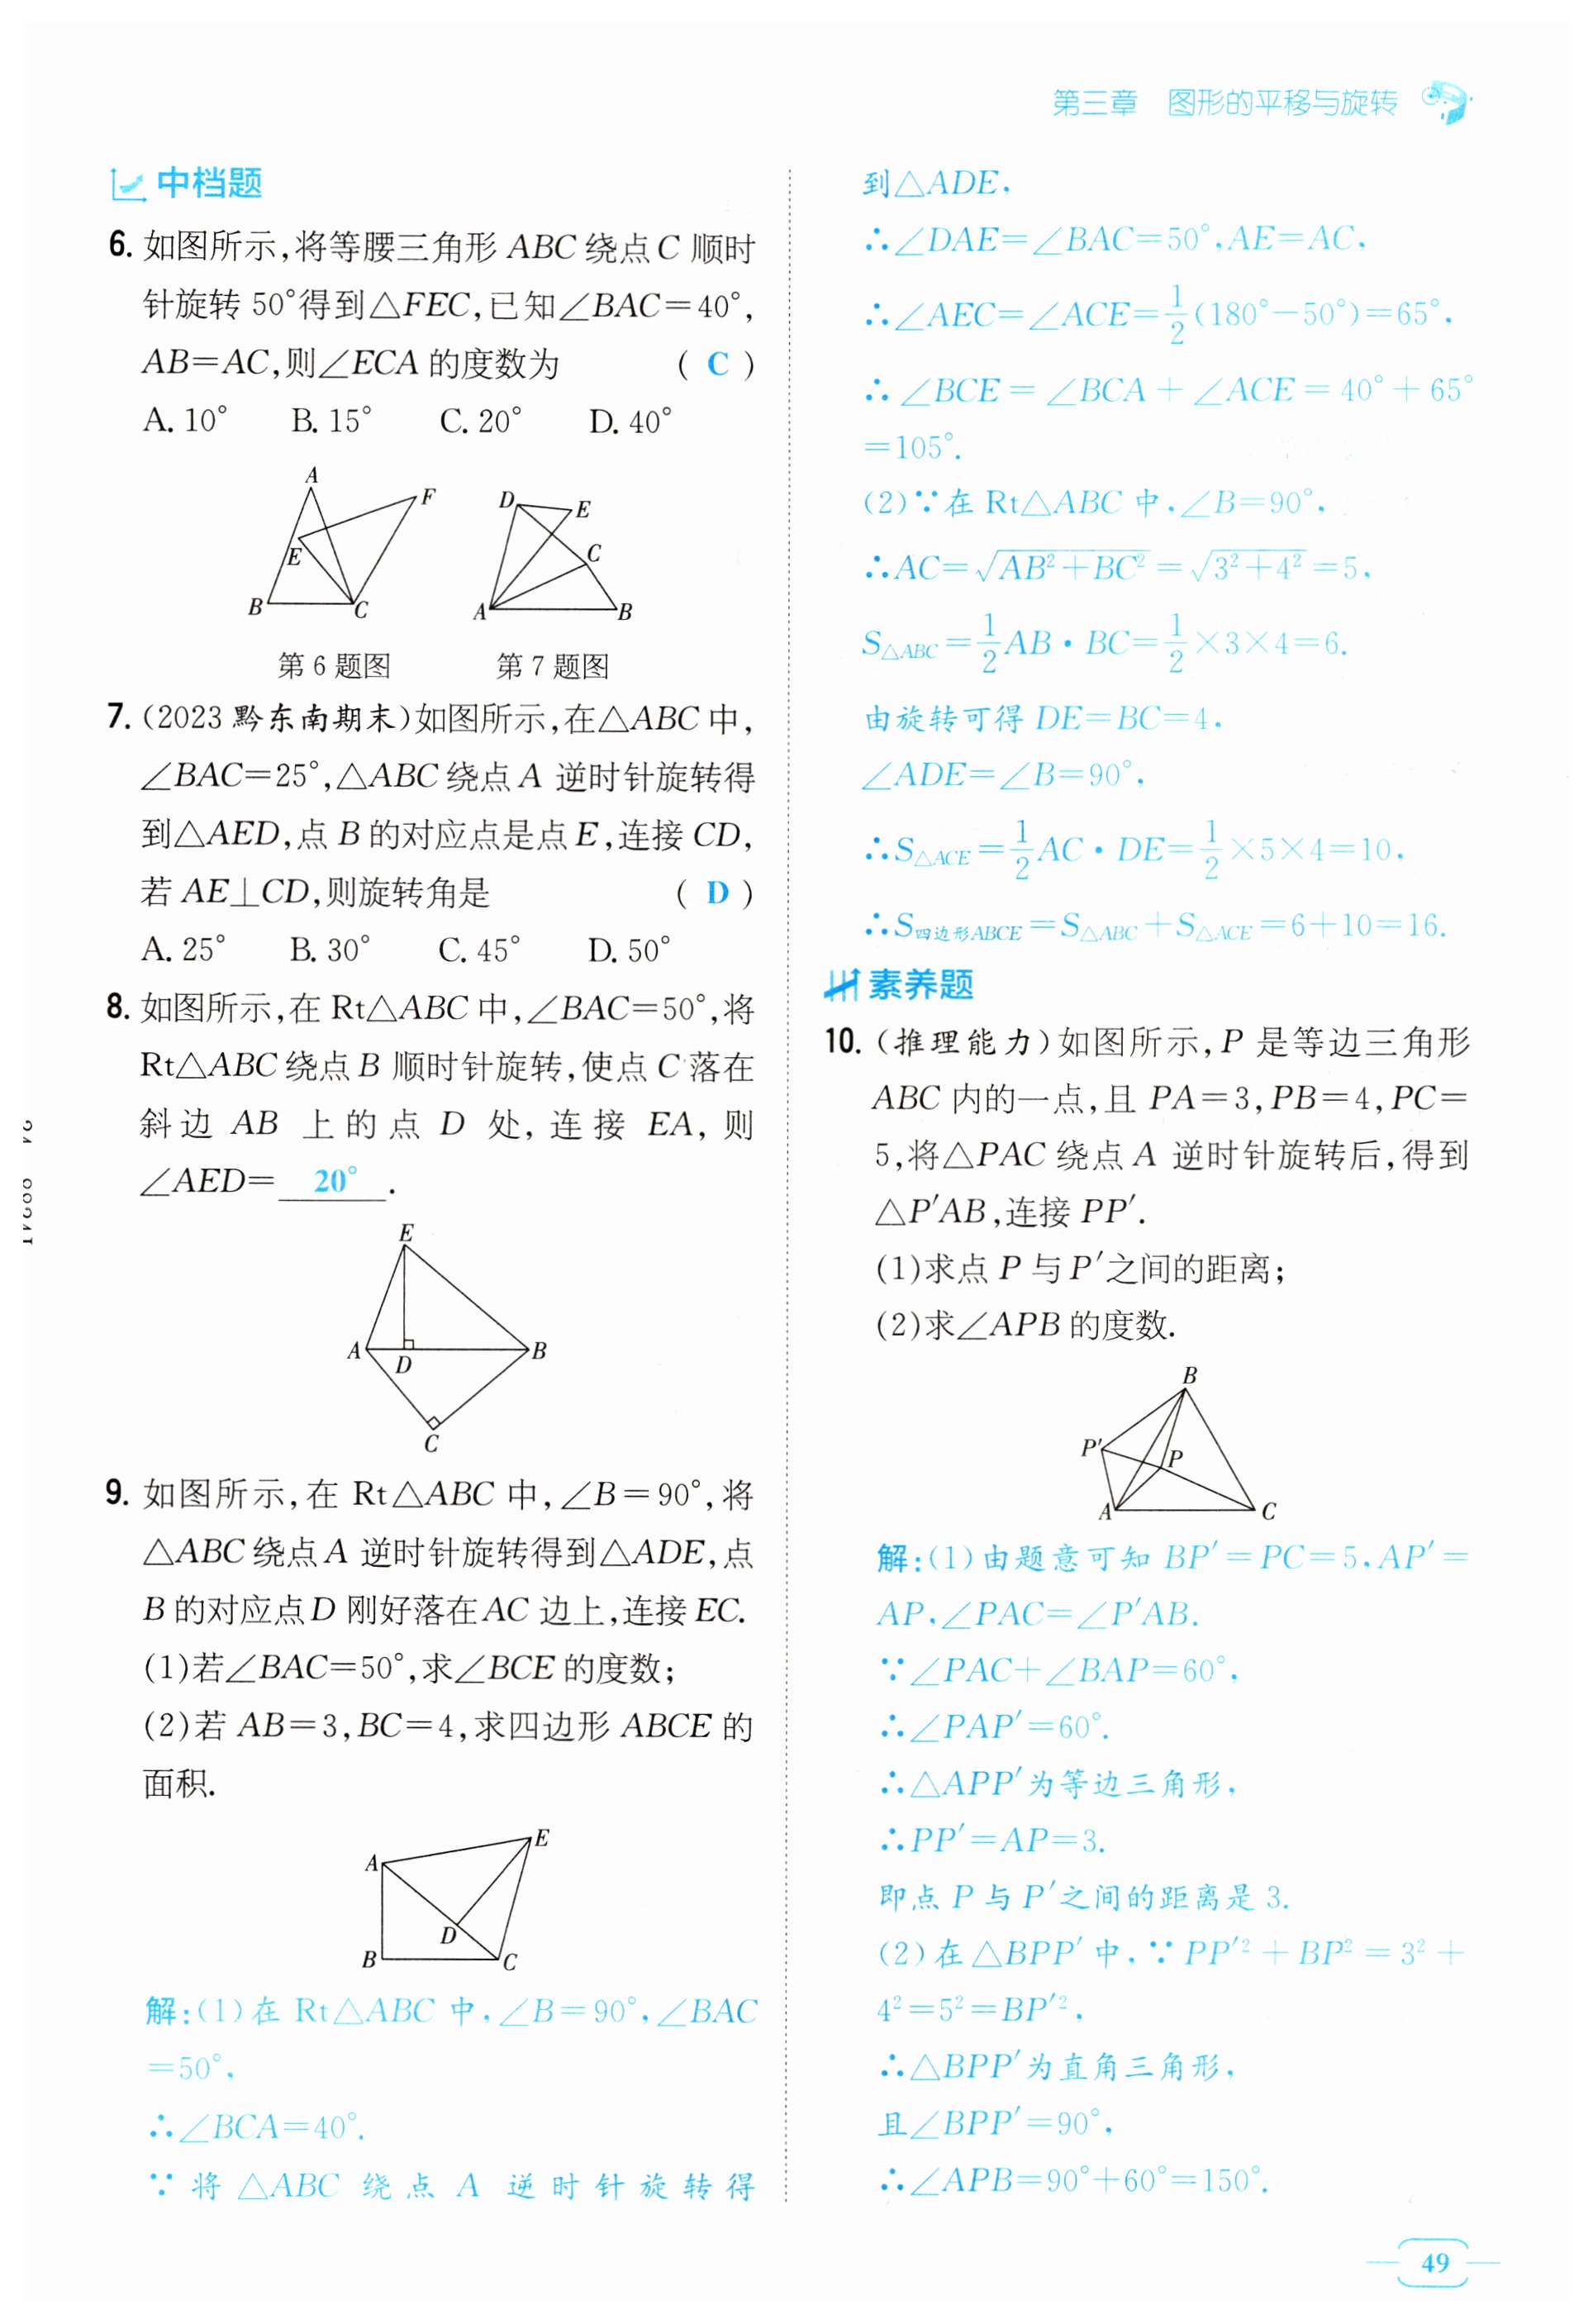 第三章 图形的平移与旋转
中档题
6. 如图所示,将等腰三角形 ABC 绕点 C 顺时
针旋转 50°得到△FEC,已知∠BAC=40°,
AB=AC,则∠ECA 的度数为 ( C )
A. 10° B. 15° C. 20° D. 40°
A
F
E
B
C
D
E
C
A
B
第 6 题图 第 7 题图
7. (2023 黔东南期末)如图所示,在△ABC 中,
∠BAC=25°,△ABC 绕点 A 逆时针旋转得
到△AED,点 B 的对应点是点 E,连接 CD,
若 AE⊥CD,则旋转角是 ( D )
A. 25° B. 30° C. 45° D. 50°
8. 如图所示,在 Rt△ABC 中,∠BAC=50°,将
Rt△ABC 绕点 B 顺时针旋转,使点 C 落在
斜边 AB 上的点 D 处,连接 EA,则
∠AED= 20° .
E
A
D
B
C
9. 如图所示,在 Rt△ABC 中,∠B=90°,将
△ABC 绕点 A 逆时针旋转得到△ADE,点
B 的对应点 D 刚好落在 AC 边上,连接 EC.
(1)若∠BAC=50°,求∠BCE 的度数;
(2)若 AB=3,BC=4,求四边形 ABCE 的
面积.
E
A
D
B
C
解:(1)在 Rt△ABC 中,∠B=90°,∠BAC
=50°,
∴∠BCA=40°.
∵将△ABC 绕点 A 逆时针旋转得
到△ADE,
∴∠DAE=∠BAC=50°,AE=AC,
∴∠AEC=∠ACE=1/2(180°-50°)=65°,
∴∠BCE=∠BCA+∠ACE=40°+65°
=105°.
(2)∵在 Rt△ABC 中,∠B=90°,
∴AC=√(AB²+BC²)=√(3²+4²)=5,
S△ABC=1/2AB·BC=1/2×3×4=6.
由旋转可得 DE=BC=4,
∠ADE=∠B=90°,
∴S△ACE=1/2AC·DE=1/2×5×4=10,
∴S四边形ABCE=S△ABC+S△ACE=6+10=16.
素养题
10. (推理能力)如图所示,P 是等边三角形
ABC 内的一点,且 PA=3,PB=4,PC=
5,将△PAC 绕点 A 逆时针旋转后,得到
△P′AB,连接 PP′.
(1)求点 P 与 P′之间的距离;
(2)求∠APB 的度数.
B
P′
P
A
C
解:(1)由题意可知 BP′=PC=5,AP′=
AP,∠PAC=∠P′AB.
∵∠PAC+∠BAP=60°,
∴∠PAP′=60°.
∴△APP′为等边三角形,
∴PP′=AP=3.
即点 P 与 P′之间的距离是 3.
(2)在△BPP′中,∵PP′²+BP²=3²+
4²=5²=BP′²,
∴△BPP′为直角三角形,
且∠BPP′=90°,
∴∠APB=90°+60°=150°.
49